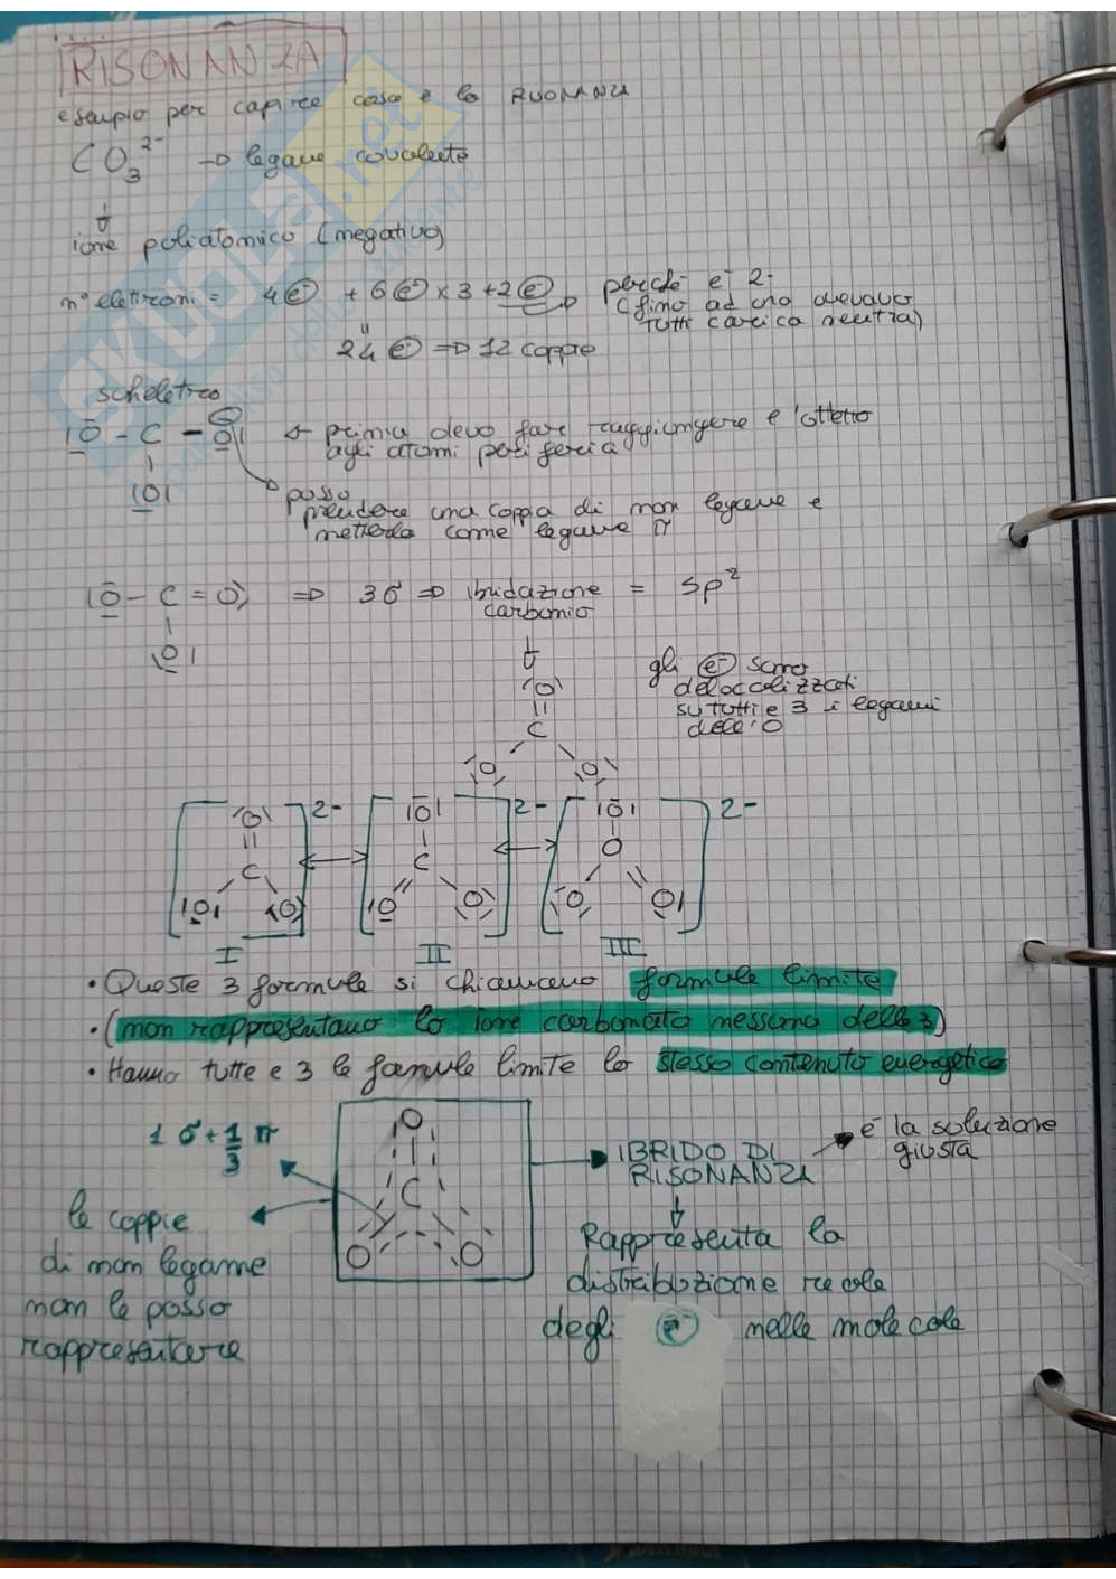 RISONANZA
esempio per capire cosa è la RISONANZA
CO₃²⁻ → legame covalente
↓
ione poliatomico (negativo)
n° elettroni = 4 e⁻ + 6 e⁻ x 3 + 2 e⁻ → perché è 2-
(fino ad ora avevano
tutti carica neutra)
"
24 e⁻ ⇒ 12 coppie
scheletro
|O̅ - C - O̅| ← prima devo far raggiungere l'ottetto
agli atomi periferia
|O|
→ posso
prendere una coppia di non legame e
metterla come legame π
|O̅ - C = O⟩ ⇒ 3σ ⇒ ibridazione = sp²
carbonio
|O|
↓
gli e⁻ sono
delocalizzati
su tutti e 3 i legami
dell'O
O
||
C
O O
[O = C O O]²⁻ ↔ [|O̅| - C O O]²⁻ ↔ [|O̅| O O O]²⁻
I II III
• Queste 3 formule si chiamano formule limite
• (non rappresentano lo ione carbonato nessuna delle 3)
• Hanno tutte e 3 le formule limite lo stesso contenuto energetico
1 σ + 1/3 π
O
C
O O
→ IBRIDO DI
RISONANZA
→ è la soluzione
giusta
le coppie
di non legame
non le posso
rappresentare
↓
Rappresenta la
distribuzione reale
degli e⁻ nelle molecole